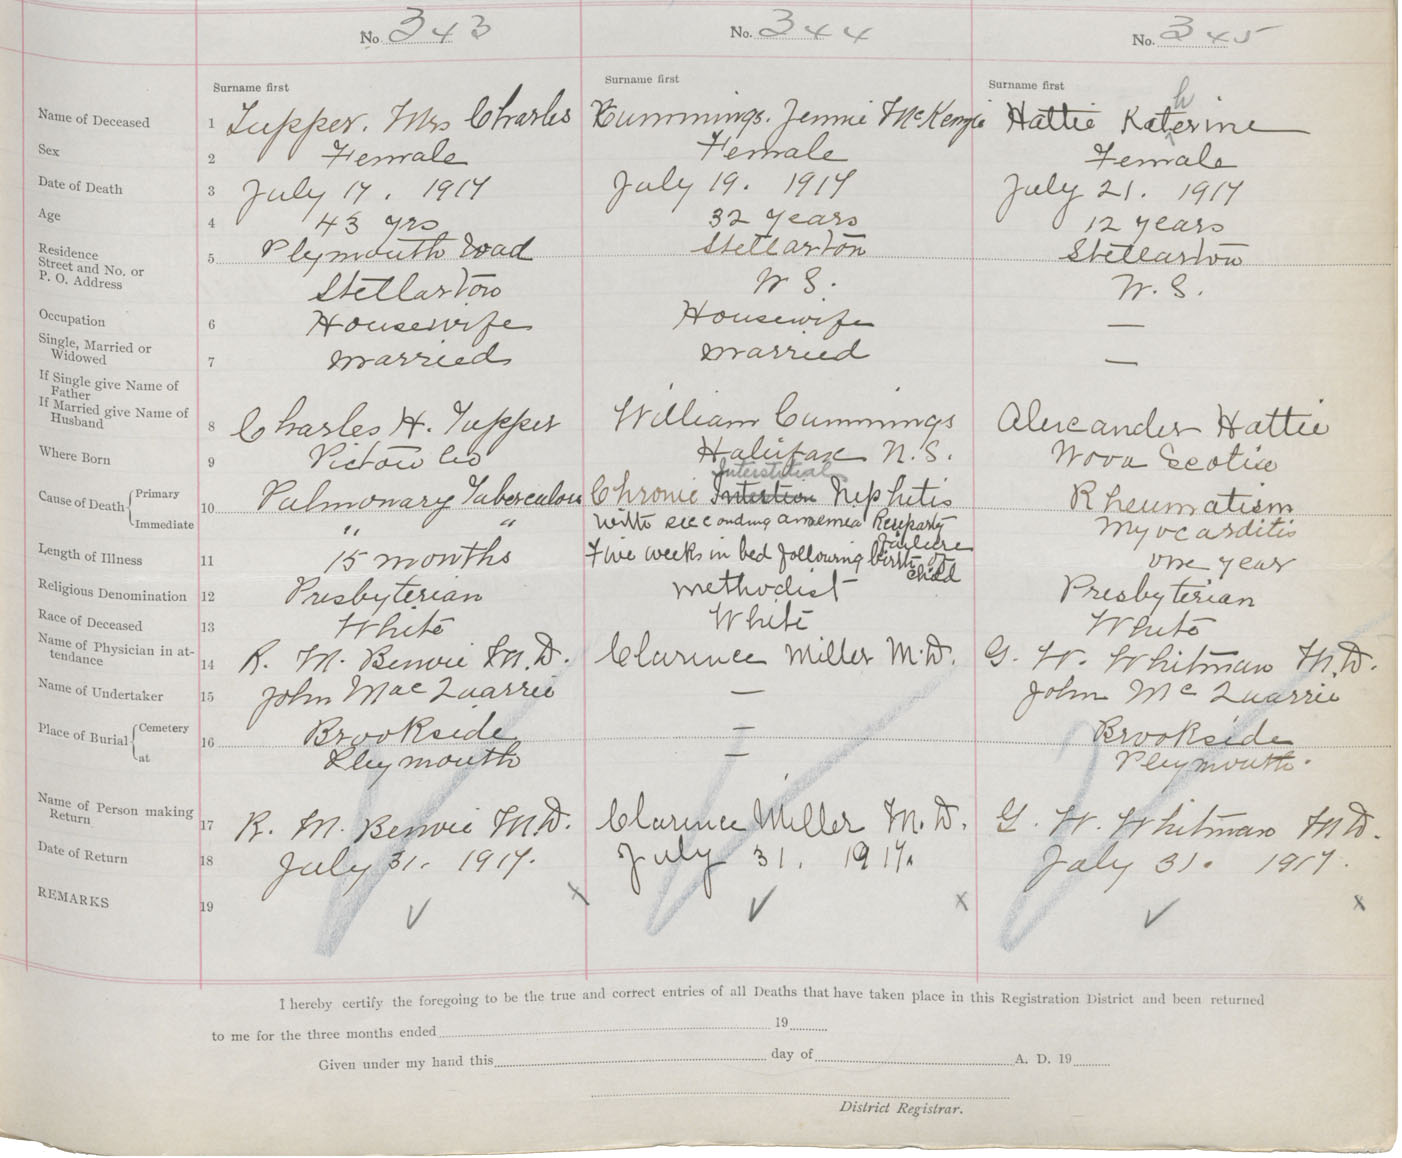 No. 343 No. 344 No. 345
Surname first Surname first Surname first
Name of Deceased 1 Tupper. Mrs Charles Cummings. Jennie McKenzie Hattie Katherine
Sex 2 Female Female Female
Date of Death 3 July 17. 1917 July 19. 1917 July 21. 1917
Age 4 43 yrs 32 years 12 years
Residence
Street and No. or
P. O. Address
5 Plymouth Road Stellarton Stellarton
Stellarton N S. N. S.
Occupation 6 Housewife Housewife —
Single, Married or
Widowed 7 Married Married —
If Single give Name of
Father
If Married give Name of
Husband 8 Charles H. Tupper William Cummings Alexander Hattie
Where Born 9 Pictou Co Halifax N.S. Nova Scotia
Interstitial
Cause of Death Primary 10 Pulmonary Tuberculous Chronic Intertion Nephitis Rheumatism
Immediate " " with seconding anaemia Myocarditis
failure
Length of Illness 11 15 months Five weeks in bed following birth of child one year
Religious Denomination 12 Presbyterian Methodist Presbyterian
Race of Deceased 13 White White White
Name of Physician in at-
tendance 14 R. M. Benvie M.D. Clarence Miller M.D. G. W. Whitman M.D.
Name of Undertaker 15 John MacQuarrie — John McQuarrie
Place of Burial Cemetery 16 Brookside — Brookside
at Plymouth — Plymouth.
Name of Person making
Return 17 R. M. Benvie M.D. Clarence Miller M.D. G. W. Whitman M.D.
Date of Return 18 July 31. 1917. July 31. 1917. July 31. 1917.
REMARKS 19 ✓ x ✓ x ✓ x
I hereby certify the foregoing to be the true and correct entries of all Deaths that have taken place in this Registration District and been returned
to me for the three months ended 19
Given under my hand this day of A. D. 19
District Registrar.